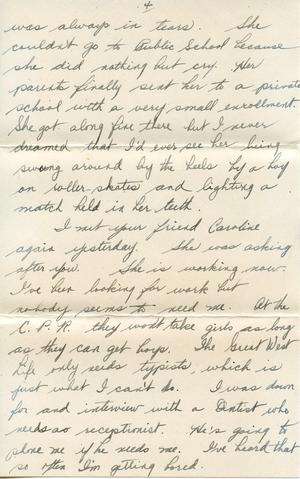 4
was always in tears. She
couldn't go to Public School because
she did nothing but cry. Her
parents finally sent her to a private
school with a very small enrollment.
She got along fine there but I never
dreamed that I'd ever see her being
swung around by the heels by a boy
on roller-skates and lighting a
match held in her teeth.
I met your friend Caroline
again yesterday. She was asking
after you. She is working now.
I've been looking for work but
nobody seems to need me. At the
C.P.R. they won't take girls as long
as they can get boys. The Great West
Life only needs typists, which is
just what I can't do. I was down
for and interview with a Dntist who
needs a receptionist. He's going to
phone me if he needs me. I've heard that
so often I'm getting bored.